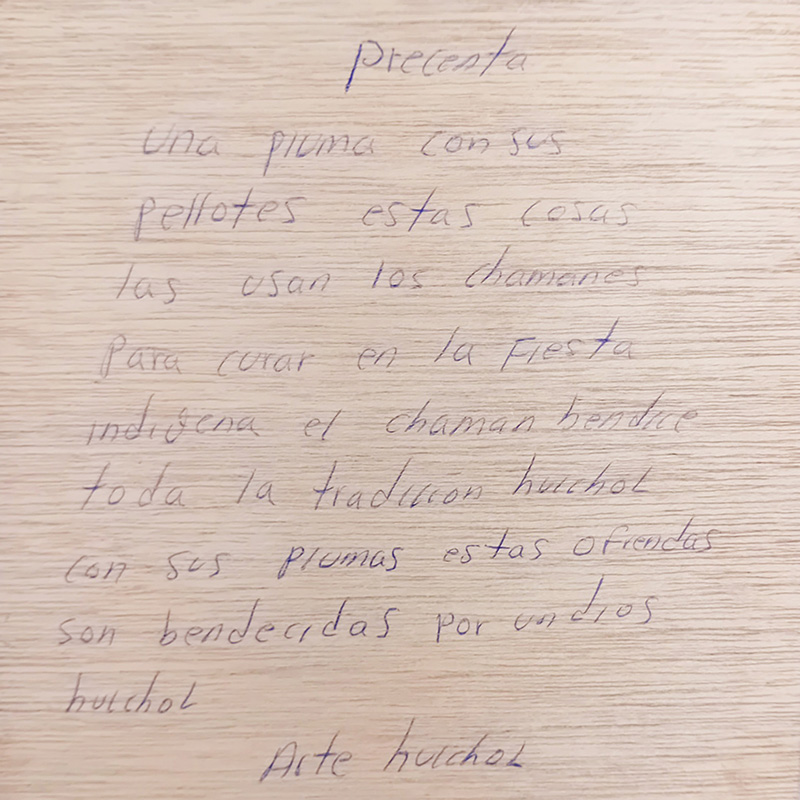 Precenta
una pluma con sus
pellotes estas cosas
las usan los chamanes
para curar en la Fiesta
indigena el chaman bendice
toda la tradicion huichol
con sus plumas estas ofrendas
son bendecidas por un dios
huichol
Arte huichol